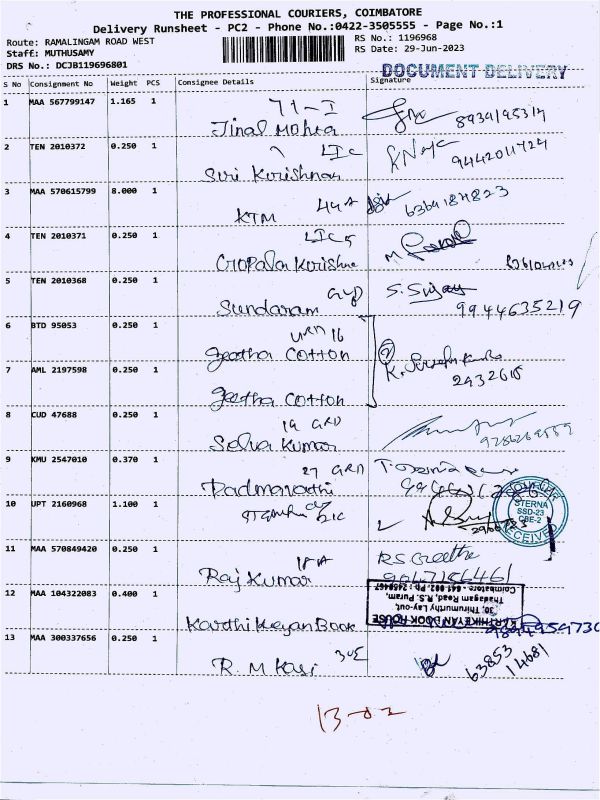 THE PROFESSIONAL COURIERS, COIMBATORE
Delivery Runsheet - PC2 - Phone No.:0422-3505555 - Page No.:1
Route: RAMALINGAM ROAD WEST
RS No.: 1196968
Staff: MUTHUSAMY
RS Date: 29-Jun-2023
DRS No.: DCJB119696801
DOCUMENT DELIVERY
S No Consignment No Weight PCS Consignee Details Signature
1 MAA 567799147 1.165 1
71-I
Jinal Mehta
2 TEN 2010372 0.250 1
LIC
9442011724
Siri Kurishnan
3 MAA 570615799 8.000 1
44A
KTM
4 TEN 2010371 0.250 1
LIC
Gopala Kurishne
5 TEN 2010368 0.250 1
S. Sujay
Sundaram
9944635219
6 BTD 95053 0.250 1
16
Geetha COTTON
7 AML 2197598 0.250 1
2432615
Geetha COTTON
8 CUD 47688 0.250 1
19 GRD
Selva Kumar
9 KMU 2547010 0.370 1
27 GRD
Padmavathi
10 UPT 2160968 1.100 1
LIC
STERNA
SSD-23
CBE-2
RECEIVED
11 MAA 570849420 0.250 1
18A
RS Geetha
Raj Kumar
12 MAA 104322083 0.400 1
KARTHIKEYAN BOOK HOUSE
30, Thirumurthy Lay-out,
Thadagam Road, R.S. Puram,
Coimbatore - 641 002. Ph : 2458467
Karthikeyan Book
13 MAA 300337656 0.250 1
30E
R. M Kasi
63853
14681
13-02